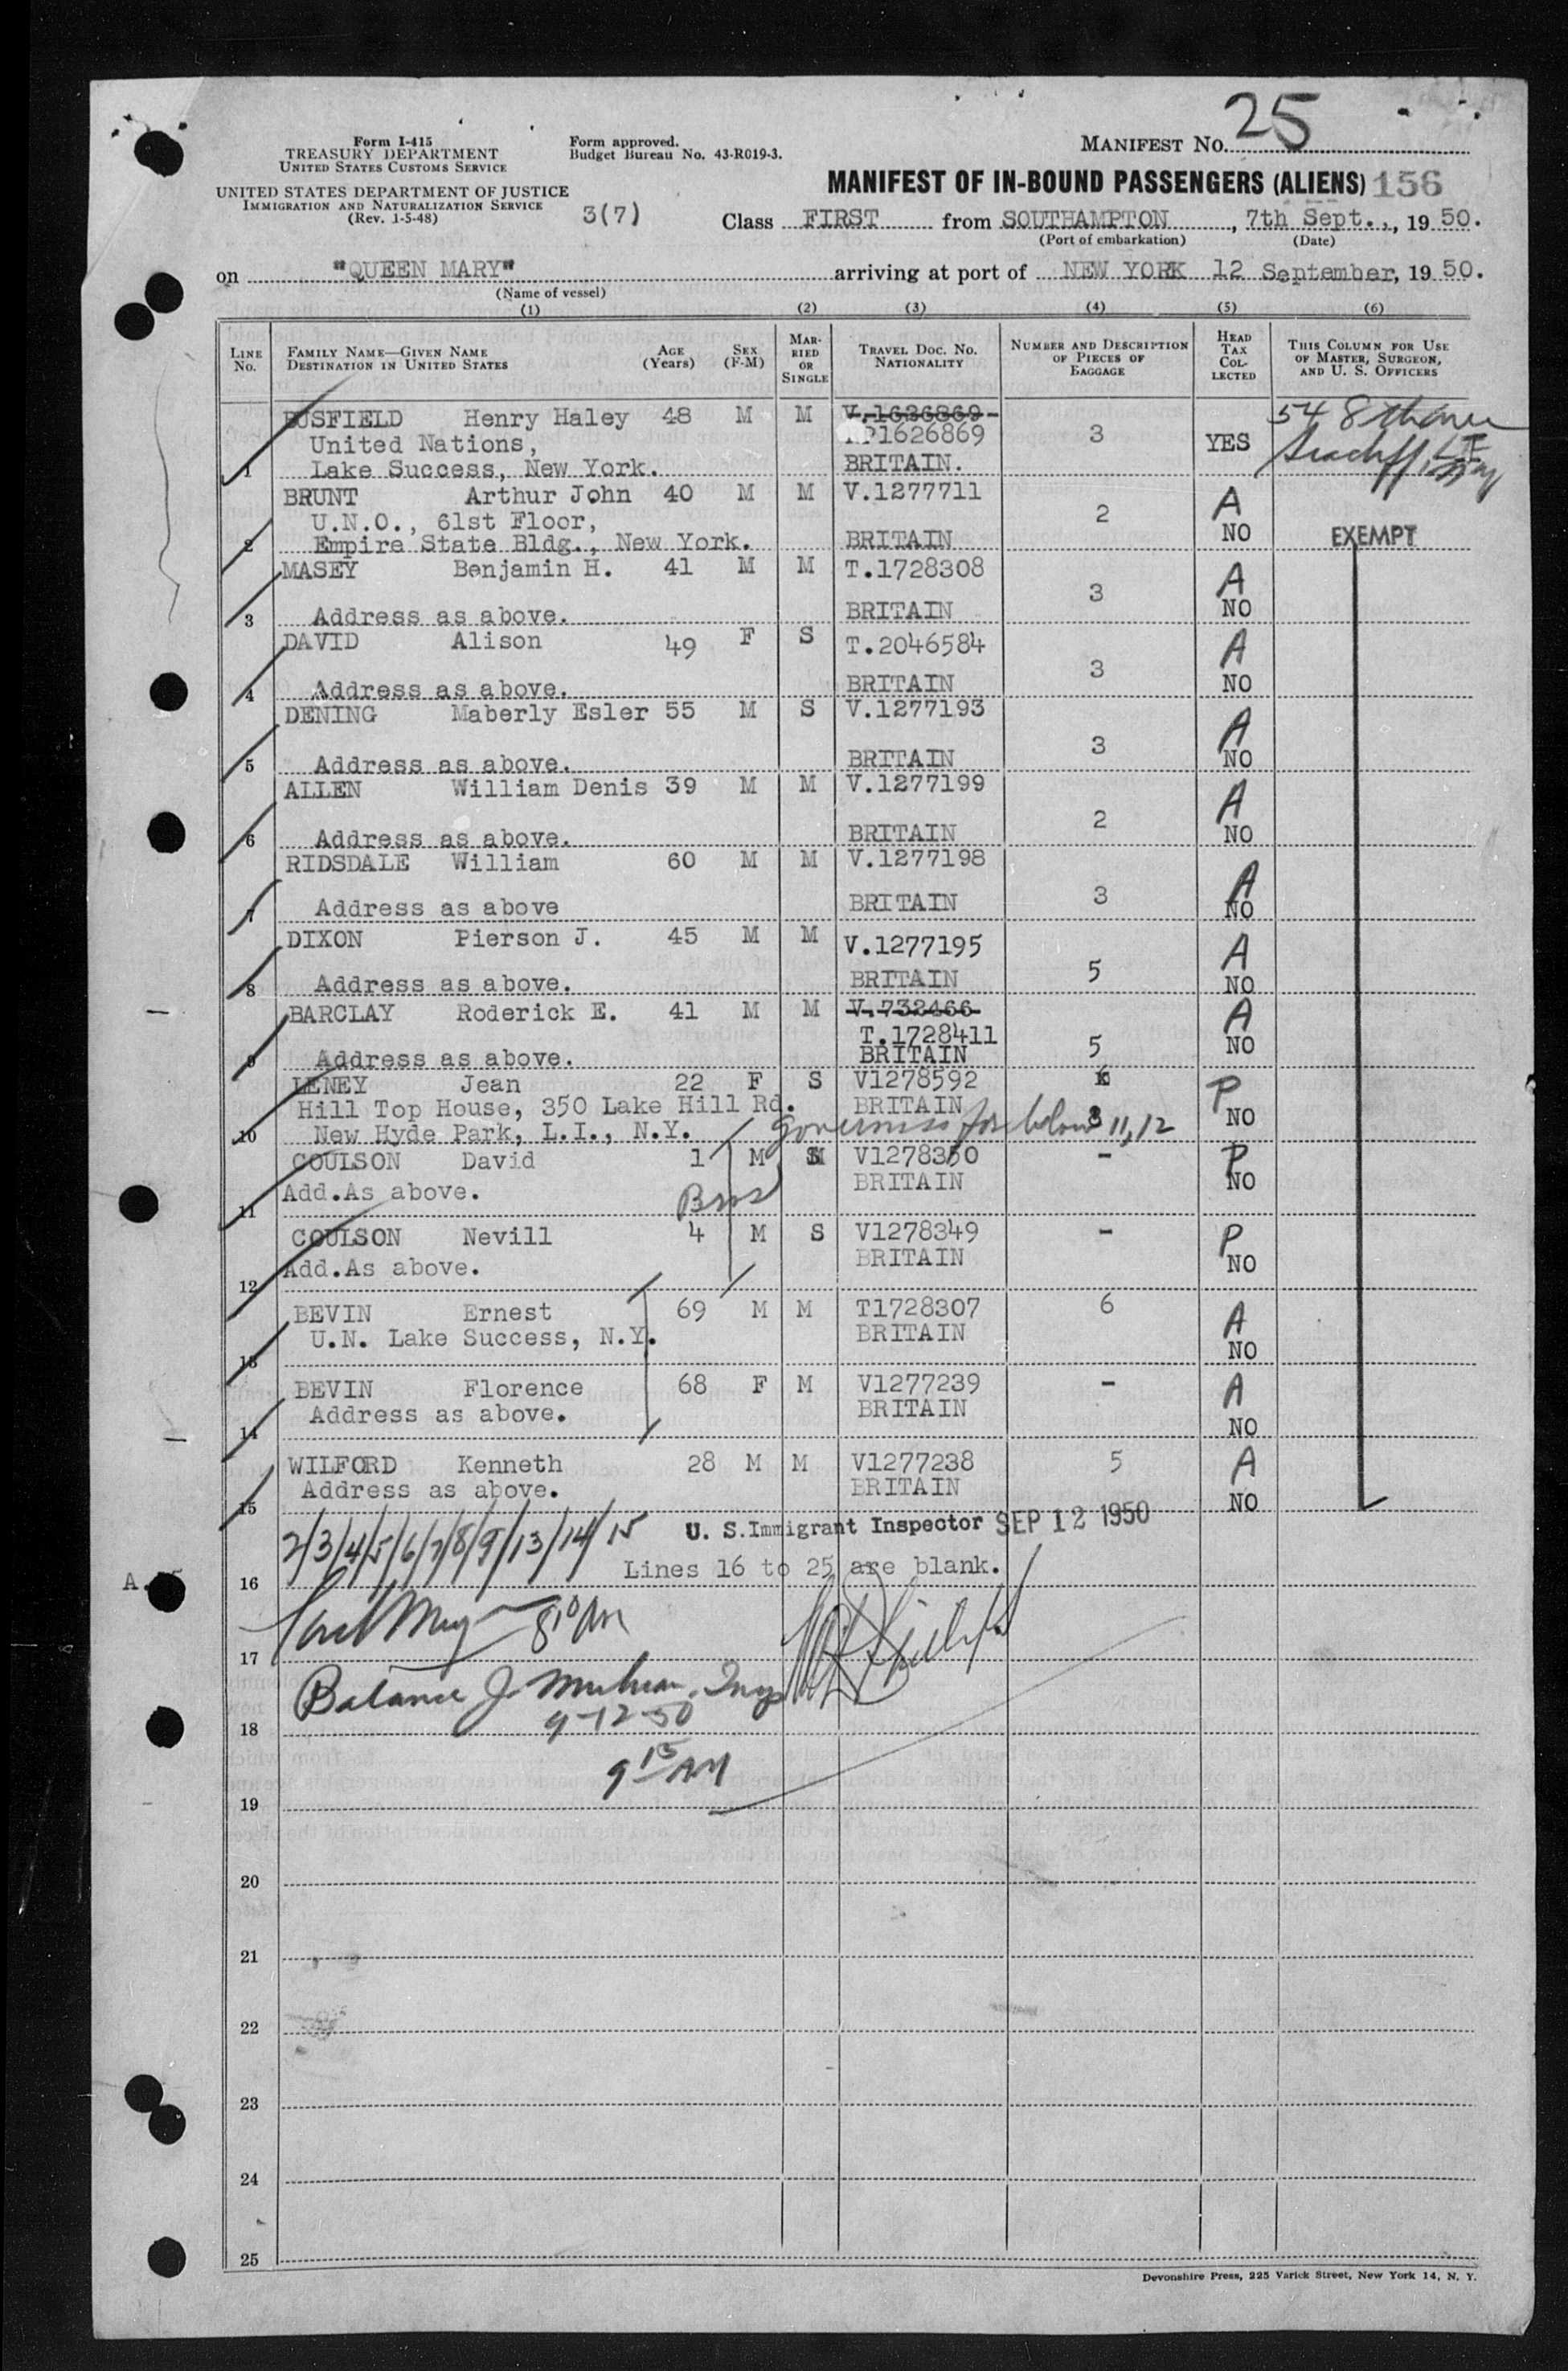 Form I-415
TREASURY DEPARTMENT
UNITED STATES CUSTOMS SERVICE
UNITED STATES DEPARTMENT OF JUSTICE
IMMIGRATION AND NATURALIZATION SERVICE
(Rev. 1-5-48)
Form approved.
Budget Bureau No. 43-R019-3.
3(7)
MANIFEST No. 25
MANIFEST OF IN-BOUND PASSENGERS (ALIENS) 156
Class FIRST from SOUTHAMPTON, 7th Sept., 1950.
(Port of embarkation) (Date)
on "QUEEN MARY" arriving at port of NEW YORK 12 September, 1950.
(Name of vessel)
(1) (2) (3) (4) (5) (6)
LINE No. FAMILY NAME—GIVEN NAME DESTINATION IN UNITED STATES AGE (Years) SEX (F-M) MARRIED OR SINGLE TRAVEL DOC. No. NATIONALITY NUMBER AND DESCRIPTION OF PIECES OF BAGGAGE HEAD TAX COLLECTED THIS COLUMN FOR USE OF MASTER, SURGEON, AND U. S. OFFICERS
BUSFIELD Henry Haley 48 M M V.1626869 54 8th
United Nations, P1626869 3 YES
1 Lake Success, New York. BRITAIN.
BRUNT Arthur John 40 M M V.1277711 A
U.N.O., 61st Floor, 2
2 Empire State Bldg., New York. BRITAIN NO EXEMPT
MASEY Benjamin H. 41 M M T.1728308 3 A
3 Address as above. BRITAIN NO
DAVID Alison 49 F S T.2046584 3 A
4 Address as above. BRITAIN NO
DENING Maberly Esler 55 M S V.1277193 3 A
5 Address as above. BRITAIN NO
ALLEN William Denis 39 M M V.1277199 2 A
6 Address as above. BRITAIN NO
RIDSDALE William 60 M M V.1277198 3 A
7 Address as above BRITAIN NO
DIXON Pierson J. 45 M M V.1277195 5 A
8 Address as above. BRITAIN NO
BARCLAY Roderick E. 41 M M V.732466 A
T.1728411 5 NO
9 Address as above. BRITAIN
LENEY Jean 22 F S V1278592 P
Hill Top House, 350 Lake Hill Rd. BRITAIN 3 NO
10 New Hyde Park, L.I., N.Y. governess for below 11, 12
COULSON David 1 M V1278350 - P
Add.As above. BRITAIN NO
11 Bros
COULSON Nevill 4 M S V1278349 - P
Add.As above. BRITAIN NO
12
BEVIN Ernest 69 M M T1728307 6 A
U.N. Lake Success, N.Y. BRITAIN
13 NO
BEVIN Florence 68 F M V1277239 - A
Address as above. BRITAIN
14 NO
WILFORD Kenneth 28 M M V1277238 5 A
Address as above. BRITAIN
15 NO
2/3/4/5/6/7/8/9/13/14/15 U. S. Immigrant Inspector SEP 12 1950
Lines 16 to 25 are blank.
16
8 10 AM
17
Balance J.
18 9-12-50
9 15 AM
19
20
21
22
23
24
25
Devonshire Press, 225 Varick Street, New York 14, N. Y.